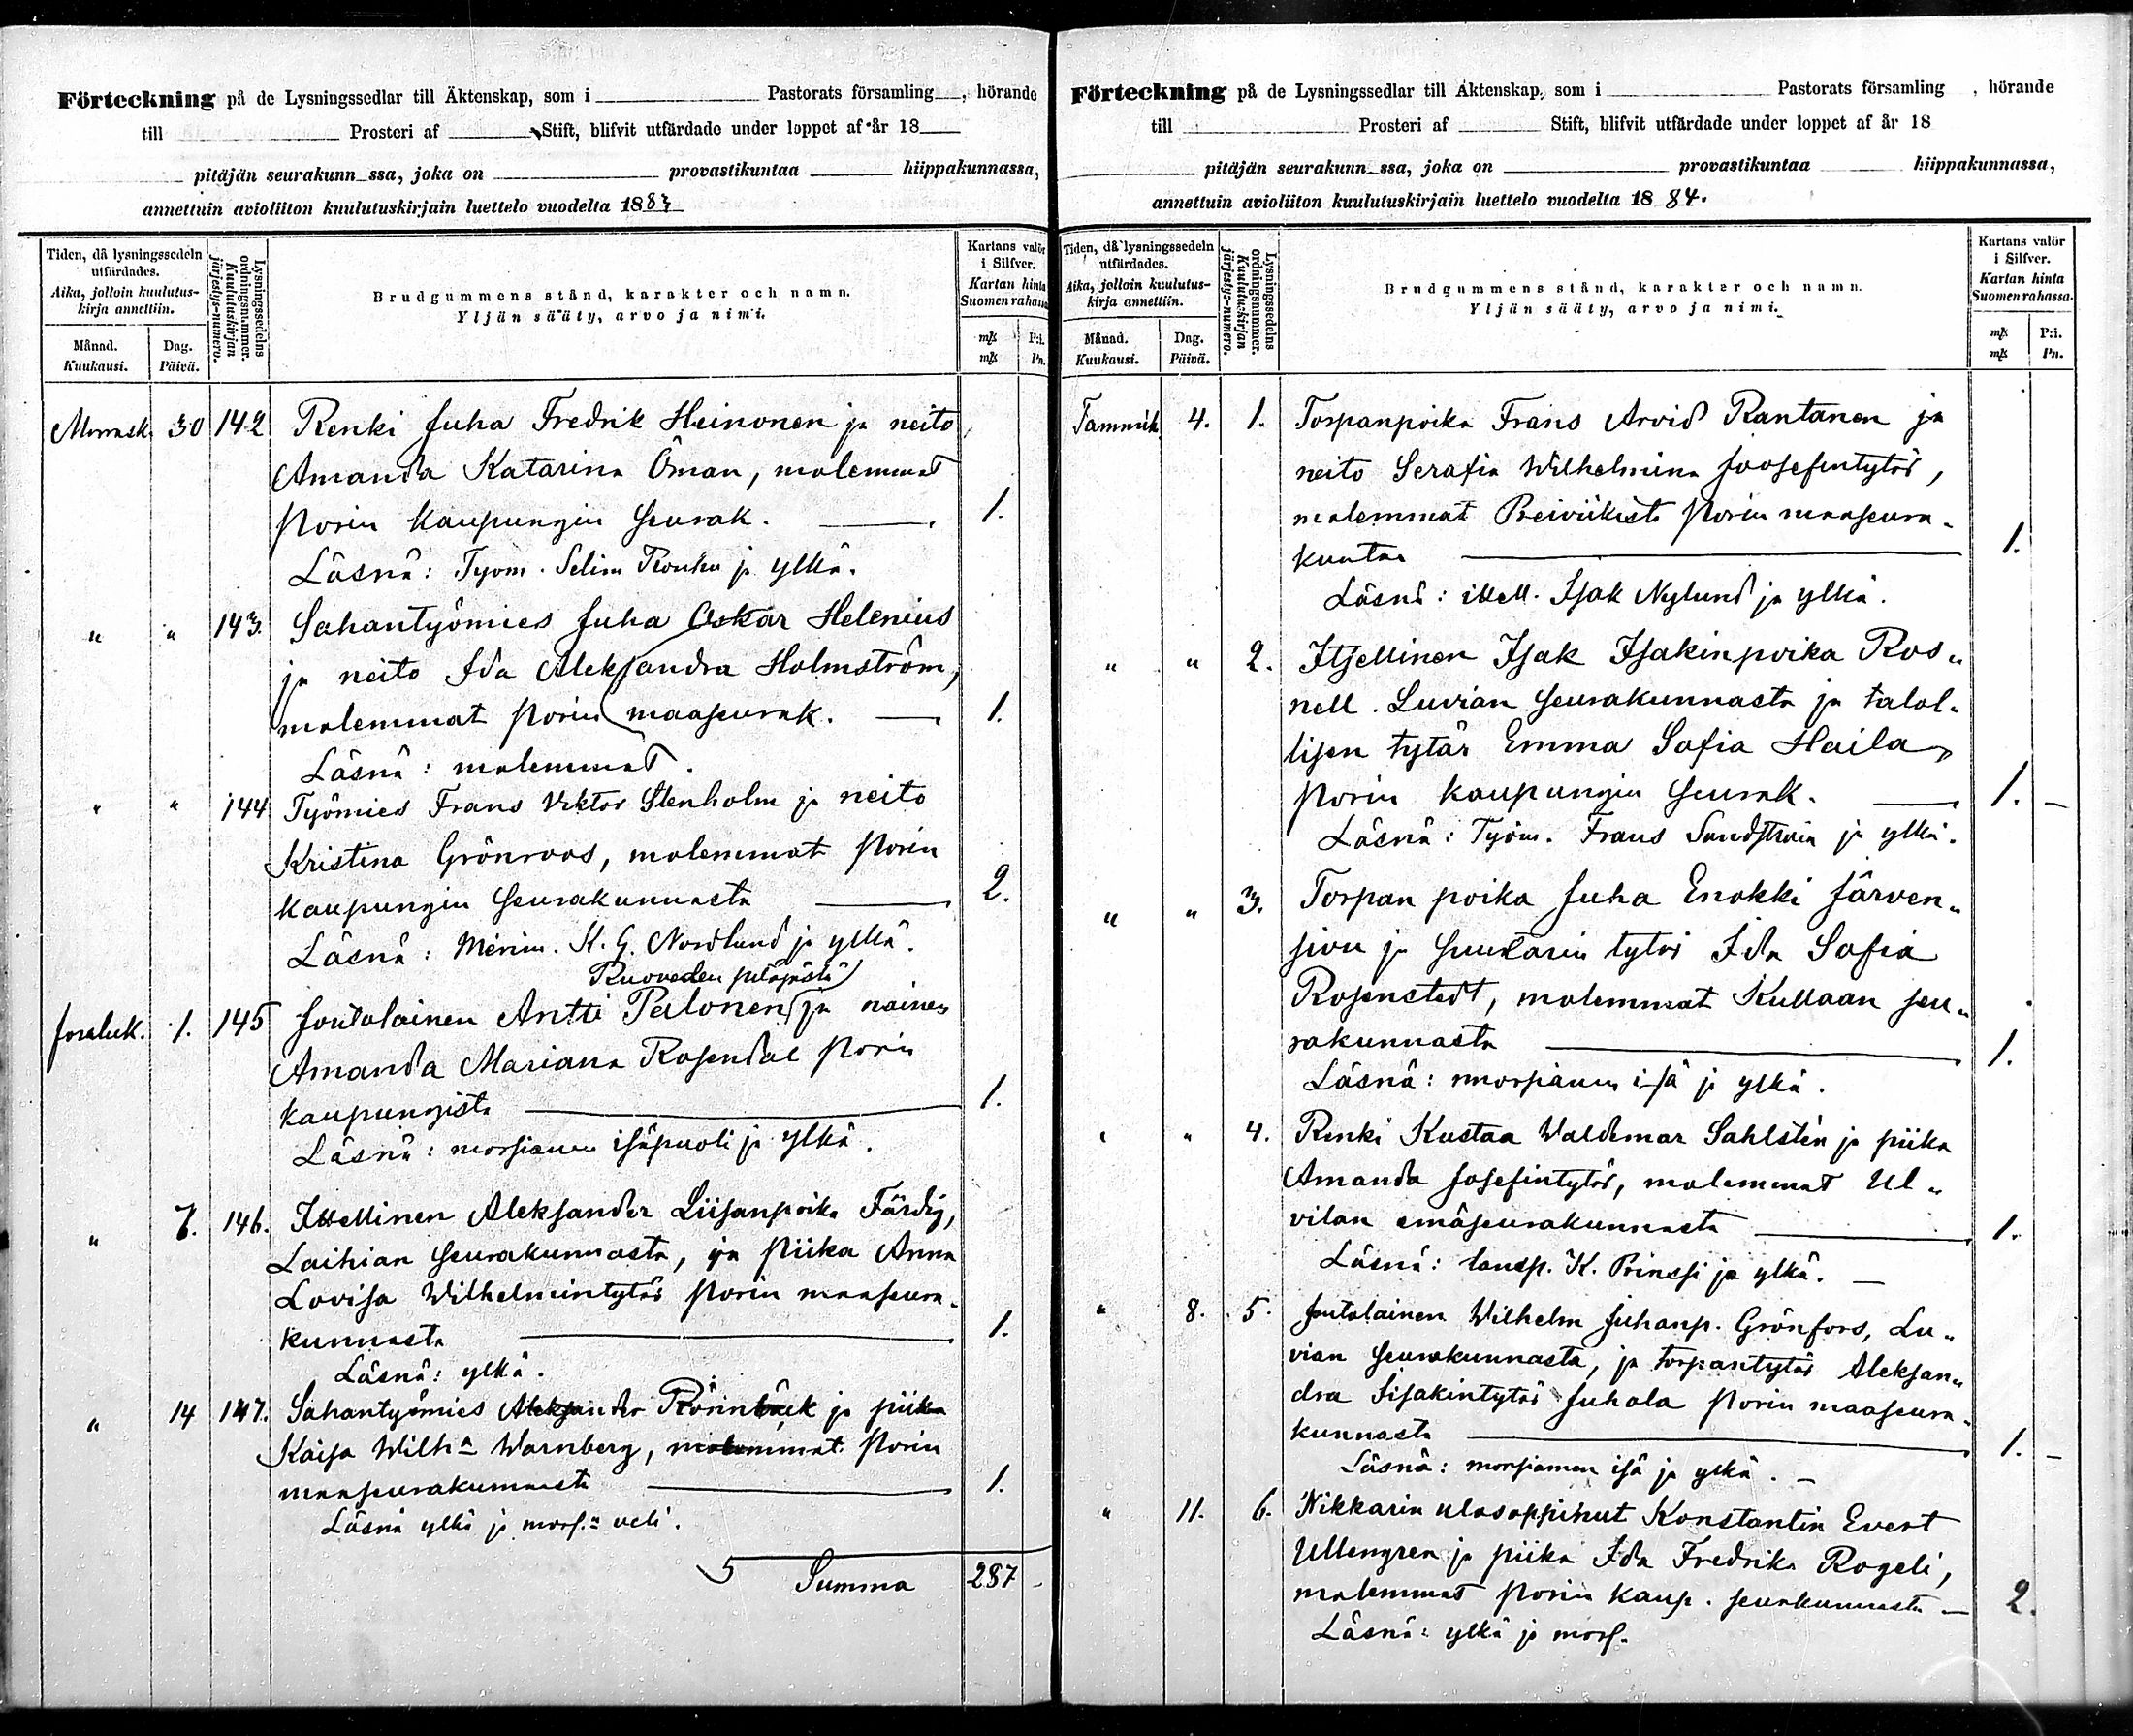 Förteckning på de Lysningssedlar till Äktenskap, som i Pastorats församling , hörande
till Prosteri af Stift, blifvit utfärdade under loppet af år 18
pitäjän seurakunn ssa, joka on provastikuntaa hiippakunnassa,
annettuin avioliiton kuulutuskirjain luettelo vuodelta 1883
Tiden, då lysningssedeln utfärdades.
Aika, jolloin kuulutus-kirja annettiin.
Månad. Kuukausi.
Dag. Päivä.
Lysningssedelns ordningsnummer.
Kuulutuskirjan järjestys-numero.
Brudgummens stånd, karakter och namn.
Yljän sääty, arvo ja nimi.
Kartans valör i Silfver.
Kartan hinta Suomen rahassa
mk P:i.
mk Pn.
Marrask. 30 142 Renki Juha Fredrik Heinonen ja neito
Amanda Katarina Öman, molemmat
Porin kaupungin seurak. 1.
Läsnä: Työm. Selim ja ylkä.
" " 143. Sahantyömies Juha Oskar Helenius
ja neito Ida Aleksandra Holmström,
molemmat Porin maaseurak. 1.
Läsnä: molemmat.
" " 144. Työmies Frans Viktor Stenholm ja neito
Kristina Grönroos, molemmat Porin
kaupungin seurakunnasta 2.
Läsnä: Merim. K. G. Nordlund ja ylkä.
Ruoveden pitäjästä
Jouluk. 1. 145 Joutolainen Antti Palonen ja nainen
Amanda Mariana Rosendal Porin
kaupungista 1.
Läsnä: morsiamen isäpuoli ja ylkä.
" 7. 146. Itsellinen Aleksander Liisanpoika Färdig,
Laihian seurakunnasta, ja piika Anna
Lovisa Wilhelmintytär Porin maaseura-
kunnasta 1.
Läsnä: ylkä.
" 14 147. Sahantyömies Aleksander Rörinbäck ja piika
Kaisa Wilh:a Warnberg, molemmat Porin
maaseurakunnasta 1.
Läsnä ylkä ja mors:n veli.
Summa 287 -
Förteckning på de Lysningssedlar till Äktenskap, som i Pastorats församling , hörande
till Prosteri af Stift, blifvit utfärdade under loppet af år 18
pitäjän seurakunn ssa, joka on provastikuntaa hiippakunnassa,
annettuin avioliiton kuulutuskirjain luettelo vuodelta 1884.
Tiden, då lysningssedeln utfärdades.
Aika, jolloin kuulutus-kirja annettiin.
Månad. Kuukausi.
Dag. Päivä.
Lysningssedelns ordningsnummer.
Kuulutuskirjan järjestys-numero.
Brudgummens stånd, karakter och namn.
Yljän sääty, arvo ja nimi.
Kartans valör i Silfver.
Kartan hinta Suomen rahassa.
mk P:i.
mk Pn.
Tammik. 4. 1. Torpanpoika Frans Arvid Rantanen ja
neito Serafia Wilhelmina Joosefintytär,
molemmat Preiviikistä Porin maaseura-
kuntaa 1.
Läsnä: itsell. Isak Nylund ja ylkä.
" " 2. Itsellinen Isak Isakinpoika Ros-
nell. Luvian seurakunnasta ja talol-
lisen tytär Emma Sofia Haila,
Porin kaupungin seurak. 1. -
Läsnä: Työm. Frans Sandström ja ylkä.
" " 3. Torpan poika Juha Enokki Järven-
sivu ja suutarin tytär Ida Sofia
Rosenstedt, molemmat Kullaan seu-
rakunnasta 1.
Läsnä: morsiamen isä ja ylkä.
" " 4. Renki Kustaa Waldemar Sahlstén ja piika
Amanda Josefintytär, molemmat Ul-
vilan emäseurakunnasta 1.
Läsnä: K. Prinssi ja ylkä. -
" 8. 5. Joutolainen Wilhelm Juhanp. Grönfors, Lu-
vian seurakunnasta, ja torpantytär Aleksan-
dra Iisakintytär Juhola Porin maaseura-
kunnasta 1. -
Läsnä: morsiamen isä ja ylkä. -
" 11. 6. Nikkarin ulosoppinut Konstantin Evert
Ullengren ja piika Ida Fredrika Rogeli,
molemmat Porin kaup. seurakunnasta - 2.
Läsnä: ylkä ja mors.